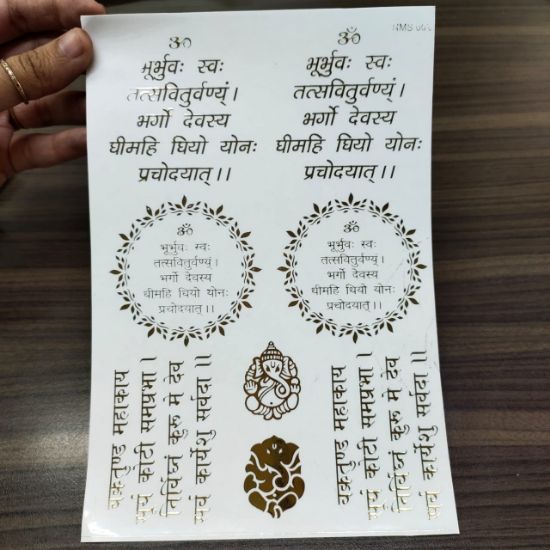 NMS
ॐ
भूर्भुवः स्वः
तत्सवितुर्वण्यं।
भर्गो देवस्य
घीमहि घियो योनः
प्रचोदयात्।।
ॐ
भूर्भुवः स्वः
तत्सवितुर्वण्यं।
भर्गो देवस्य
घीमहि घियो योनः
प्रचोदयात्।।
ॐ
भूर्भुवः स्वः
तत्सवितुर्वण्यं।
भर्गो देवस्य
घीमहि घियो योनः
प्रचोदयात्।।
ॐ
भूर्भुवः स्वः
तत्सवितुर्वण्यं।
भर्गो देवस्य
घीमहि घियो योनः
प्रचोदयात्।।
वक्रतुण्ड महाकाय
सूर्य काटी समप्रभा।
निर्विघ्नं कुरू मे देव
सर्व कार्येशु सर्वदा।।
वक्रतुण्ड महाकाय
सूर्य काटी समप्रभा।
निर्विघ्नं कुरू मे देव
सर्व कार्येशु सर्वदा।।